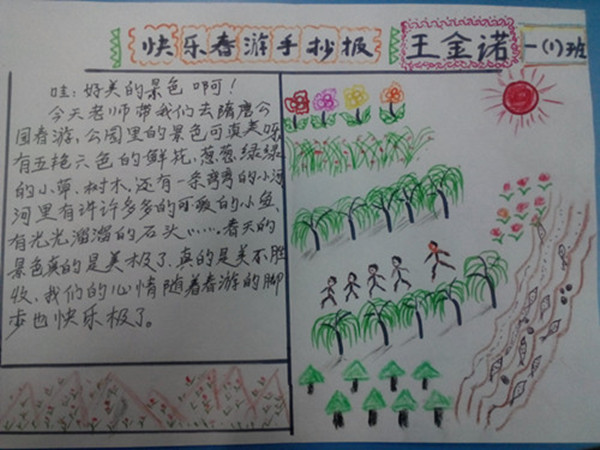 快乐春游手抄报
王金诺
一(1)班
哇：好美的景色啊！
今天老师带我们去隋唐公
园春游，公园里的景色可真美呀
有五艳六色的鲜花，葱葱绿绿
的小草、树木、还有一条弯弯的小河
河里有许许多多的可爱的小鱼
有光光溜溜的石头……春天的
景色真的是美极了，真的是美不胜
收、我们的心情随着春游的脚
步也快乐极了。